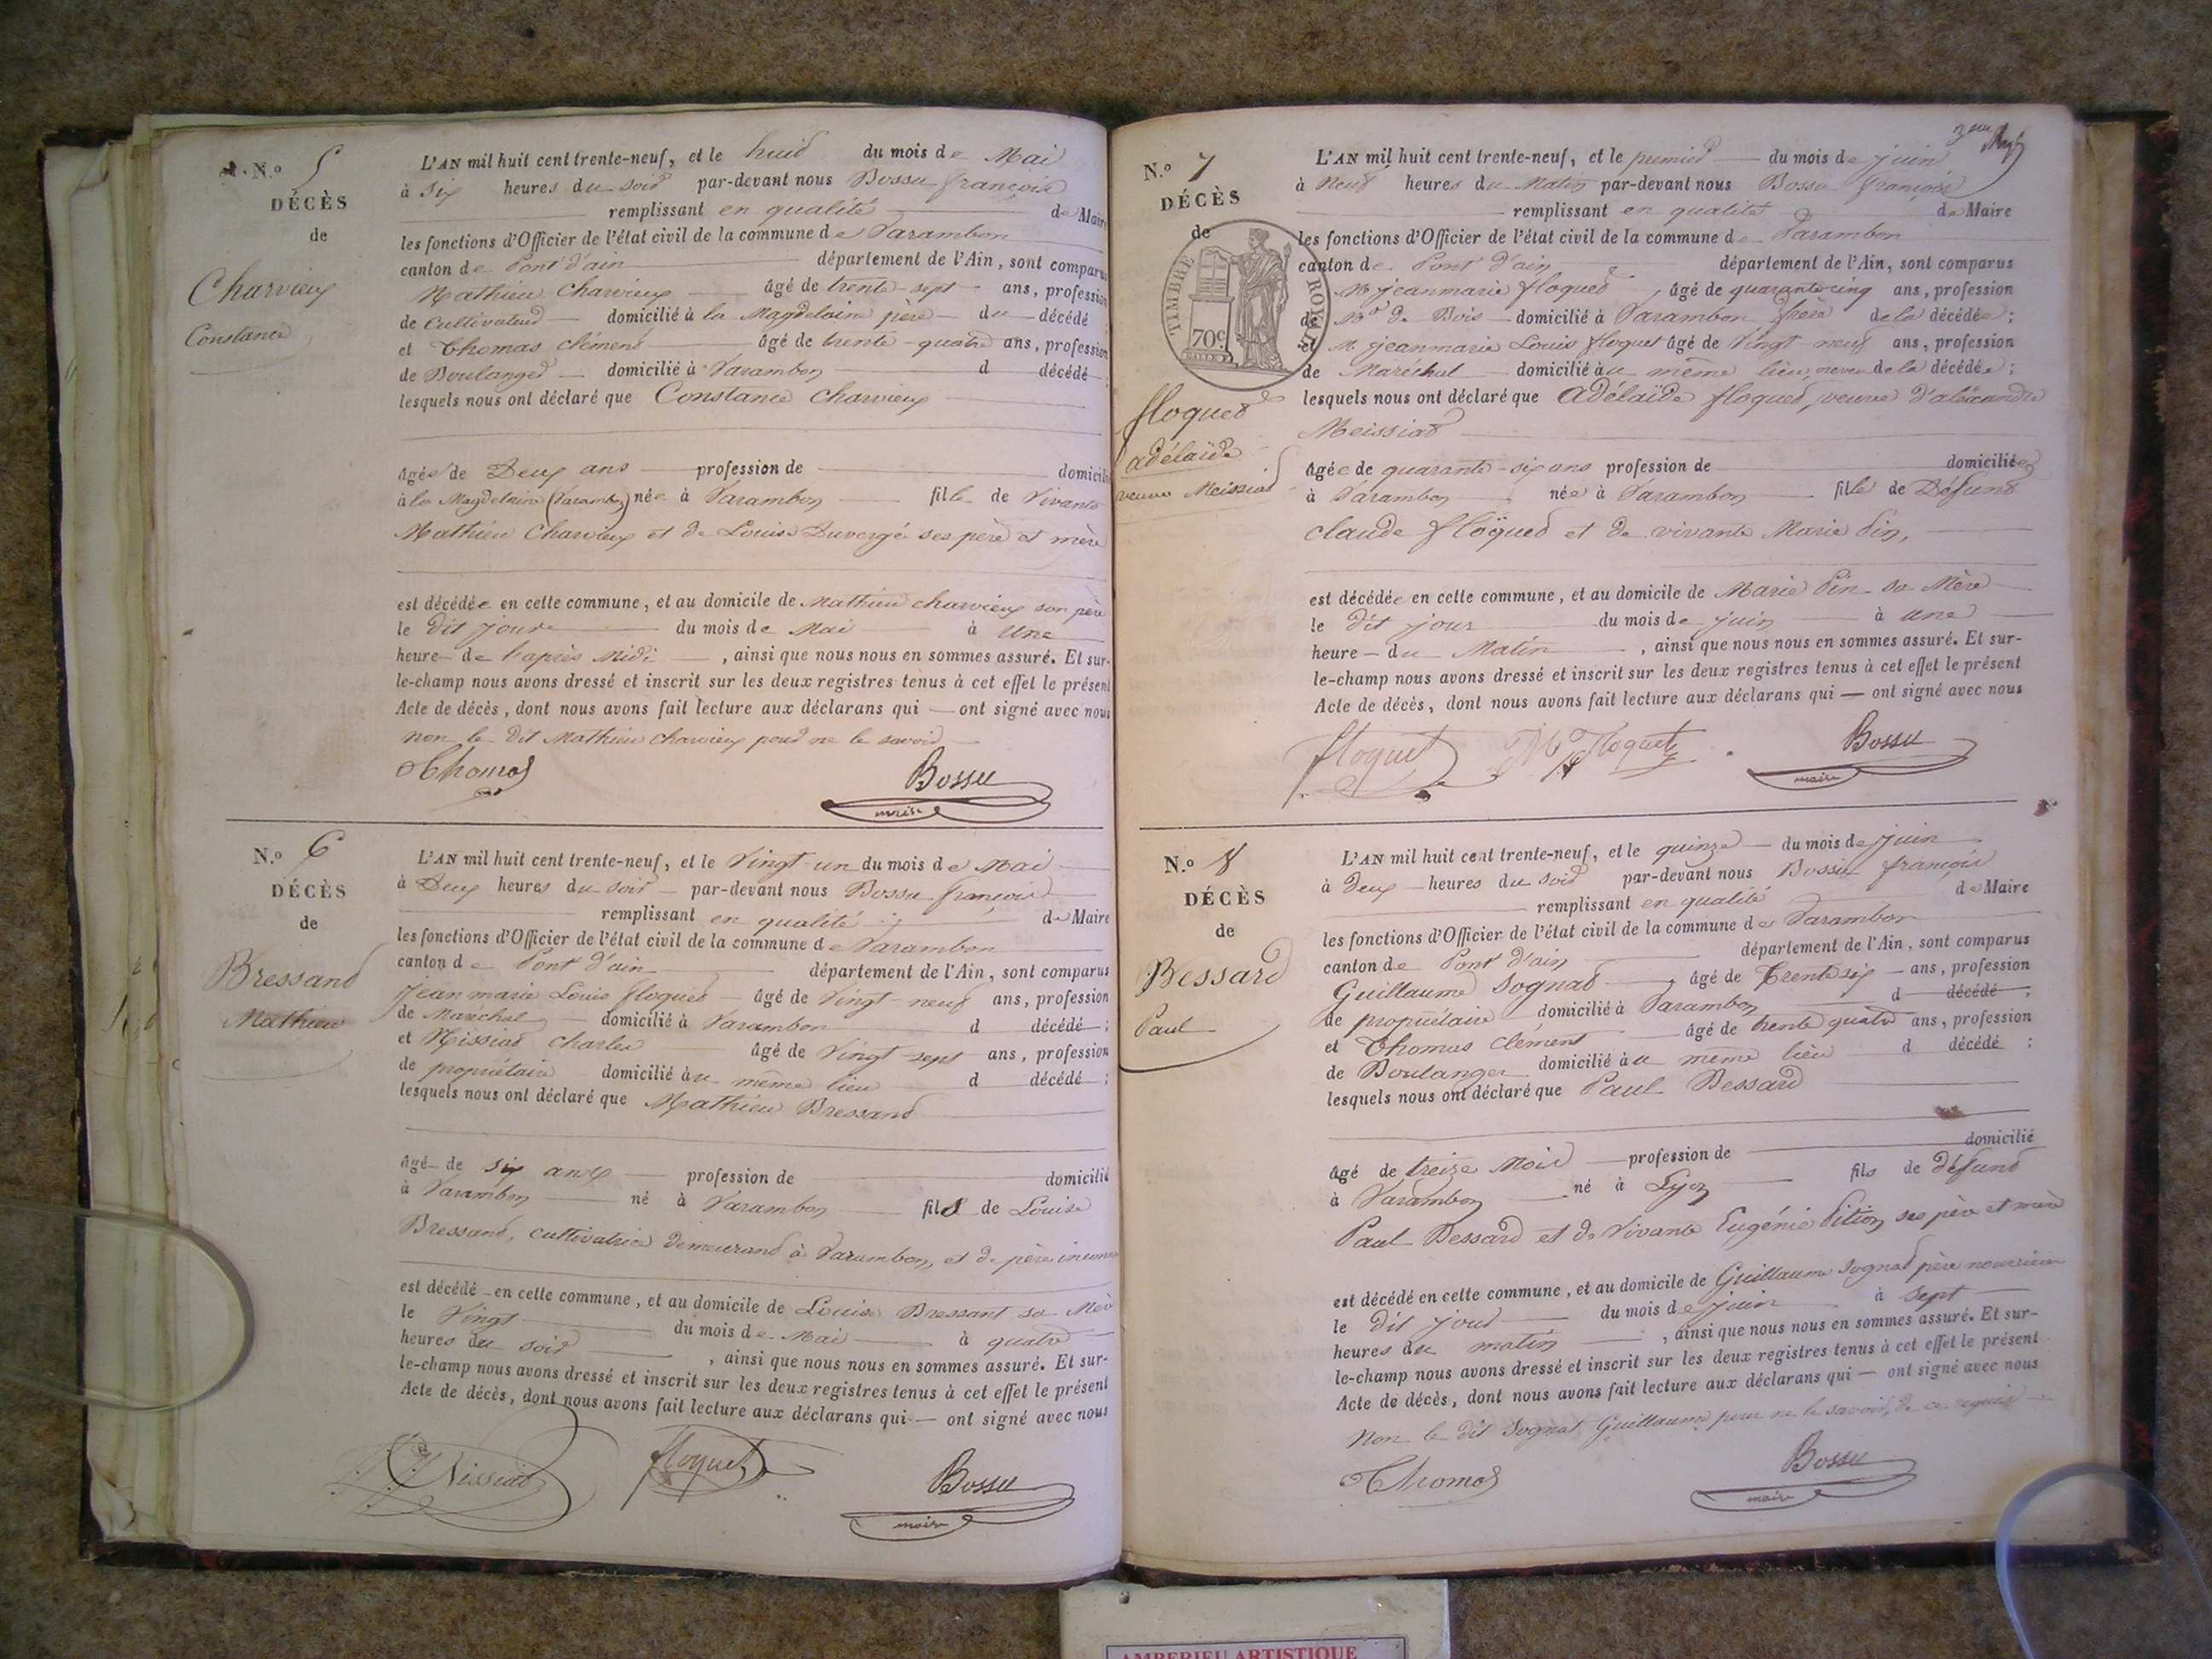 N.º 5
DÉCÈS
de
Charvieux
Constance
L'AN mil huit cent trente-neuf, et le huit du mois de Mai
à six heures du soir par-devant nous Bossu françois
remplissant en qualité de Maire
les fonctions d'Officier de l'état civil de la commune de Varambon
canton de Pont d'ain département de l'Ain, sont comparus
Mathieu Charvieux âgé de trente-sept ans, profession
de Cultivateur domicilié à la Magdelaine père du décédé
et Thomas clément âgé de trente-quatre ans, profession
de Boulanger domicilié à Varambon d décédé ;
lesquels nous ont déclaré que Constance Charvieux
âgée de Deux ans profession de domicilié
à la Magdelaine (Varambon) née à Varambon fille de Vivants
Mathieu Charvieux et de Louise Duvergé ses père et mère
est décédée en cette commune, et au domicile de Mathieu charvieux son père
le dit jour du mois de Mai à Une
heure de l'après Midi , ainsi que nous nous en sommes assuré. Et sur-
le-champ nous avons dressé et inscrit sur les deux registres tenus à cet effet le présent
Acte de décès, dont nous avons fait lecture aux déclarans qui — ont signé avec nous
non le dit Mathieu charvieux pour ne le savoir
Thomas
Bossu
maire
N.º 6
DÉCÈS
de
Bressand
Mathieu
L'AN mil huit cent trente-neuf, et le Vingt-un du mois de Mai
à Deux heures du soir par-devant nous Bossu françois
remplissant en qualité de Maire
les fonctions d'Officier de l'état civil de la commune de Varambon
canton de Pont d'ain département de l'Ain, sont comparus
Jean marie Louis floquet âgé de Vingt-neuf ans, profession
de Maréchal domicilié à Varambon d décédé ;
et Missiat Charles âgé de Vingt-sept ans, profession
de propriétaire domicilié àu même lieu d décédé ;
lesquels nous ont déclaré que Mathieu Bressand
âgé de six ans profession de domicilié
à Varambon né à Varambon fils de Louise
Bressand, cultivatrice demeurant à Varambon, et de père inconnu
est décédé en cette commune, et au domicile de Louise Bressant sa Mère
le Vingt du mois de Mai à quatre
heures du soir , ainsi que nous nous en sommes assuré. Et sur-
le-champ nous avons dressé et inscrit sur les deux registres tenus à cet effet le présent
Acte de décès, dont nous avons fait lecture aux déclarans qui — ont signé avec nous
Missiat
floquet
Bossu
maire
N.º 7
DÉCÈS
de
TIMBRE ROYAL
70c
floquet
adélaïde
veuve Meissiat
L'AN mil huit cent trente-neuf, et le premier du mois de juin
à Neuf heures du Matin par-devant nous Bossu françois
remplissant en qualité de Maire
les fonctions d'Officier de l'état civil de la commune de Varambon
canton de Pont d'ain département de l'Ain, sont comparus
M. jeanmarie floquet , âgé de quarante cinq ans, profession
de Md de Bois domicilié à Varambon frère de la décédée ;
et M. jeanmarie Louis floquet âgé de Vingt-neuf ans, profession
de Maréchal domicilié àu même lieu, neveu de la décédée ;
lesquels nous ont déclaré que Adélaïde floquet, veuve d'aléxandre
Meissiat
âgée de quarante-six ans profession de domiciliée
à Varambon née à Varambon fille de Défunt
claude floquet et de vivante Marie Pin,
est décédée en cette commune, et au domicile de Marie Pin sa Mère
le dit jour du mois de juin à une
heure — du Matin , ainsi que nous nous en sommes assuré. Et sur-
le-champ nous avons dressé et inscrit sur les deux registres tenus à cet effet le présent
Acte de décès, dont nous avons fait lecture aux déclarans qui — ont signé avec nous
floquet
floquet
Bossu
maire
N.º 8
DÉCÈS
de
Bessard
Paul
L'AN mil huit cent trente-neuf, et le quinze du mois de juin
à deux heures du soir par-devant nous Bossu françois
remplissant en qualité de Maire
les fonctions d'Officier de l'état civil de la commune de Varambon
canton de Pont d'ain département de l'Ain, sont comparus
Guillaume Sognat , âgé de Trente six ans, profession
de propriétaire domicilié à Varambon d décédé ;
et Thomas clément âgé de trente quatre ans, profession
de Boulanger domicilié àu même lieu d décédé ;
lesquels nous ont déclaré que Paul Bessard
âgé de treize Mois profession de domicilié
à Varambon né à Lyon fils de défunt
Paul Bessard et de Vivante Eugénie Pition ses père et mère
est décédé en cette commune, et au domicile de Guillaume Sognat père nourricier
le dit jour du mois de juin à sept
heures du matin , ainsi que nous nous en sommes assuré. Et sur-
le-champ nous avons dressé et inscrit sur les deux registres tenus à cet effet le présent
Acte de décès, dont nous avons fait lecture aux déclarans qui — ont signé avec nous
Non le dit Sognat Guillaume pour ne le savoir, de ce requis
Thomas
Bossu
maire
AMBERIEU ARTISTIQUE